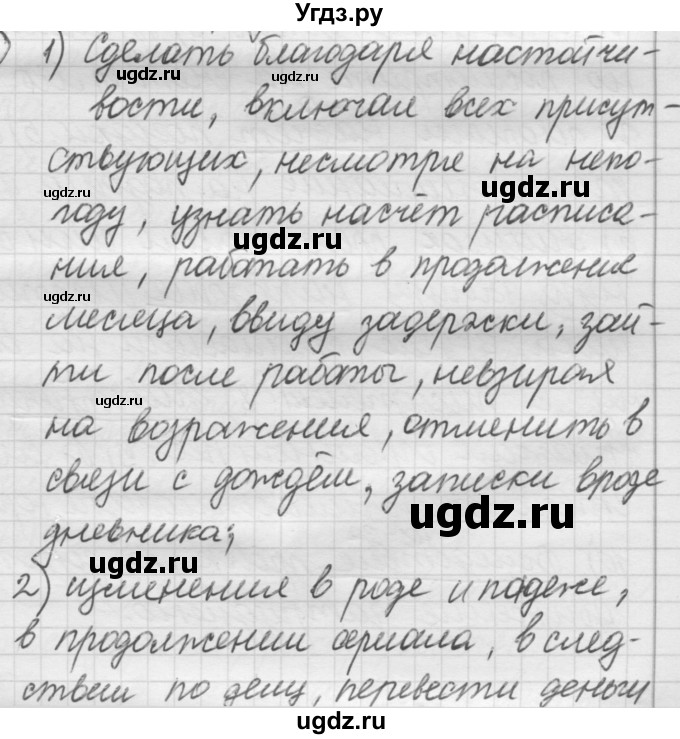 Угдз.ру
1) Сделать благодаря настойчи-
вости, включая всех присут-
ствующих, несмотря на непо-
году, узнать насчёт расписа-
ния, работать в продолжение
месяца, ввиду задержки, зай-
ти после работы, невзирая
на возражения, отменить в
связи с дождём, записки вроде
дневника;
2) изменения в роде и падеже,
в продолжении сериала, в след-
ствии по делу, перевести деньги
ugdz.ru
ugdz.ru
ugdz.ru
ugdz.ru
ugdz.ru
ugdz.ru
ugdz.ru
ugdz.ru
ugdz.ru
ugdz.ru
ugdz.ru